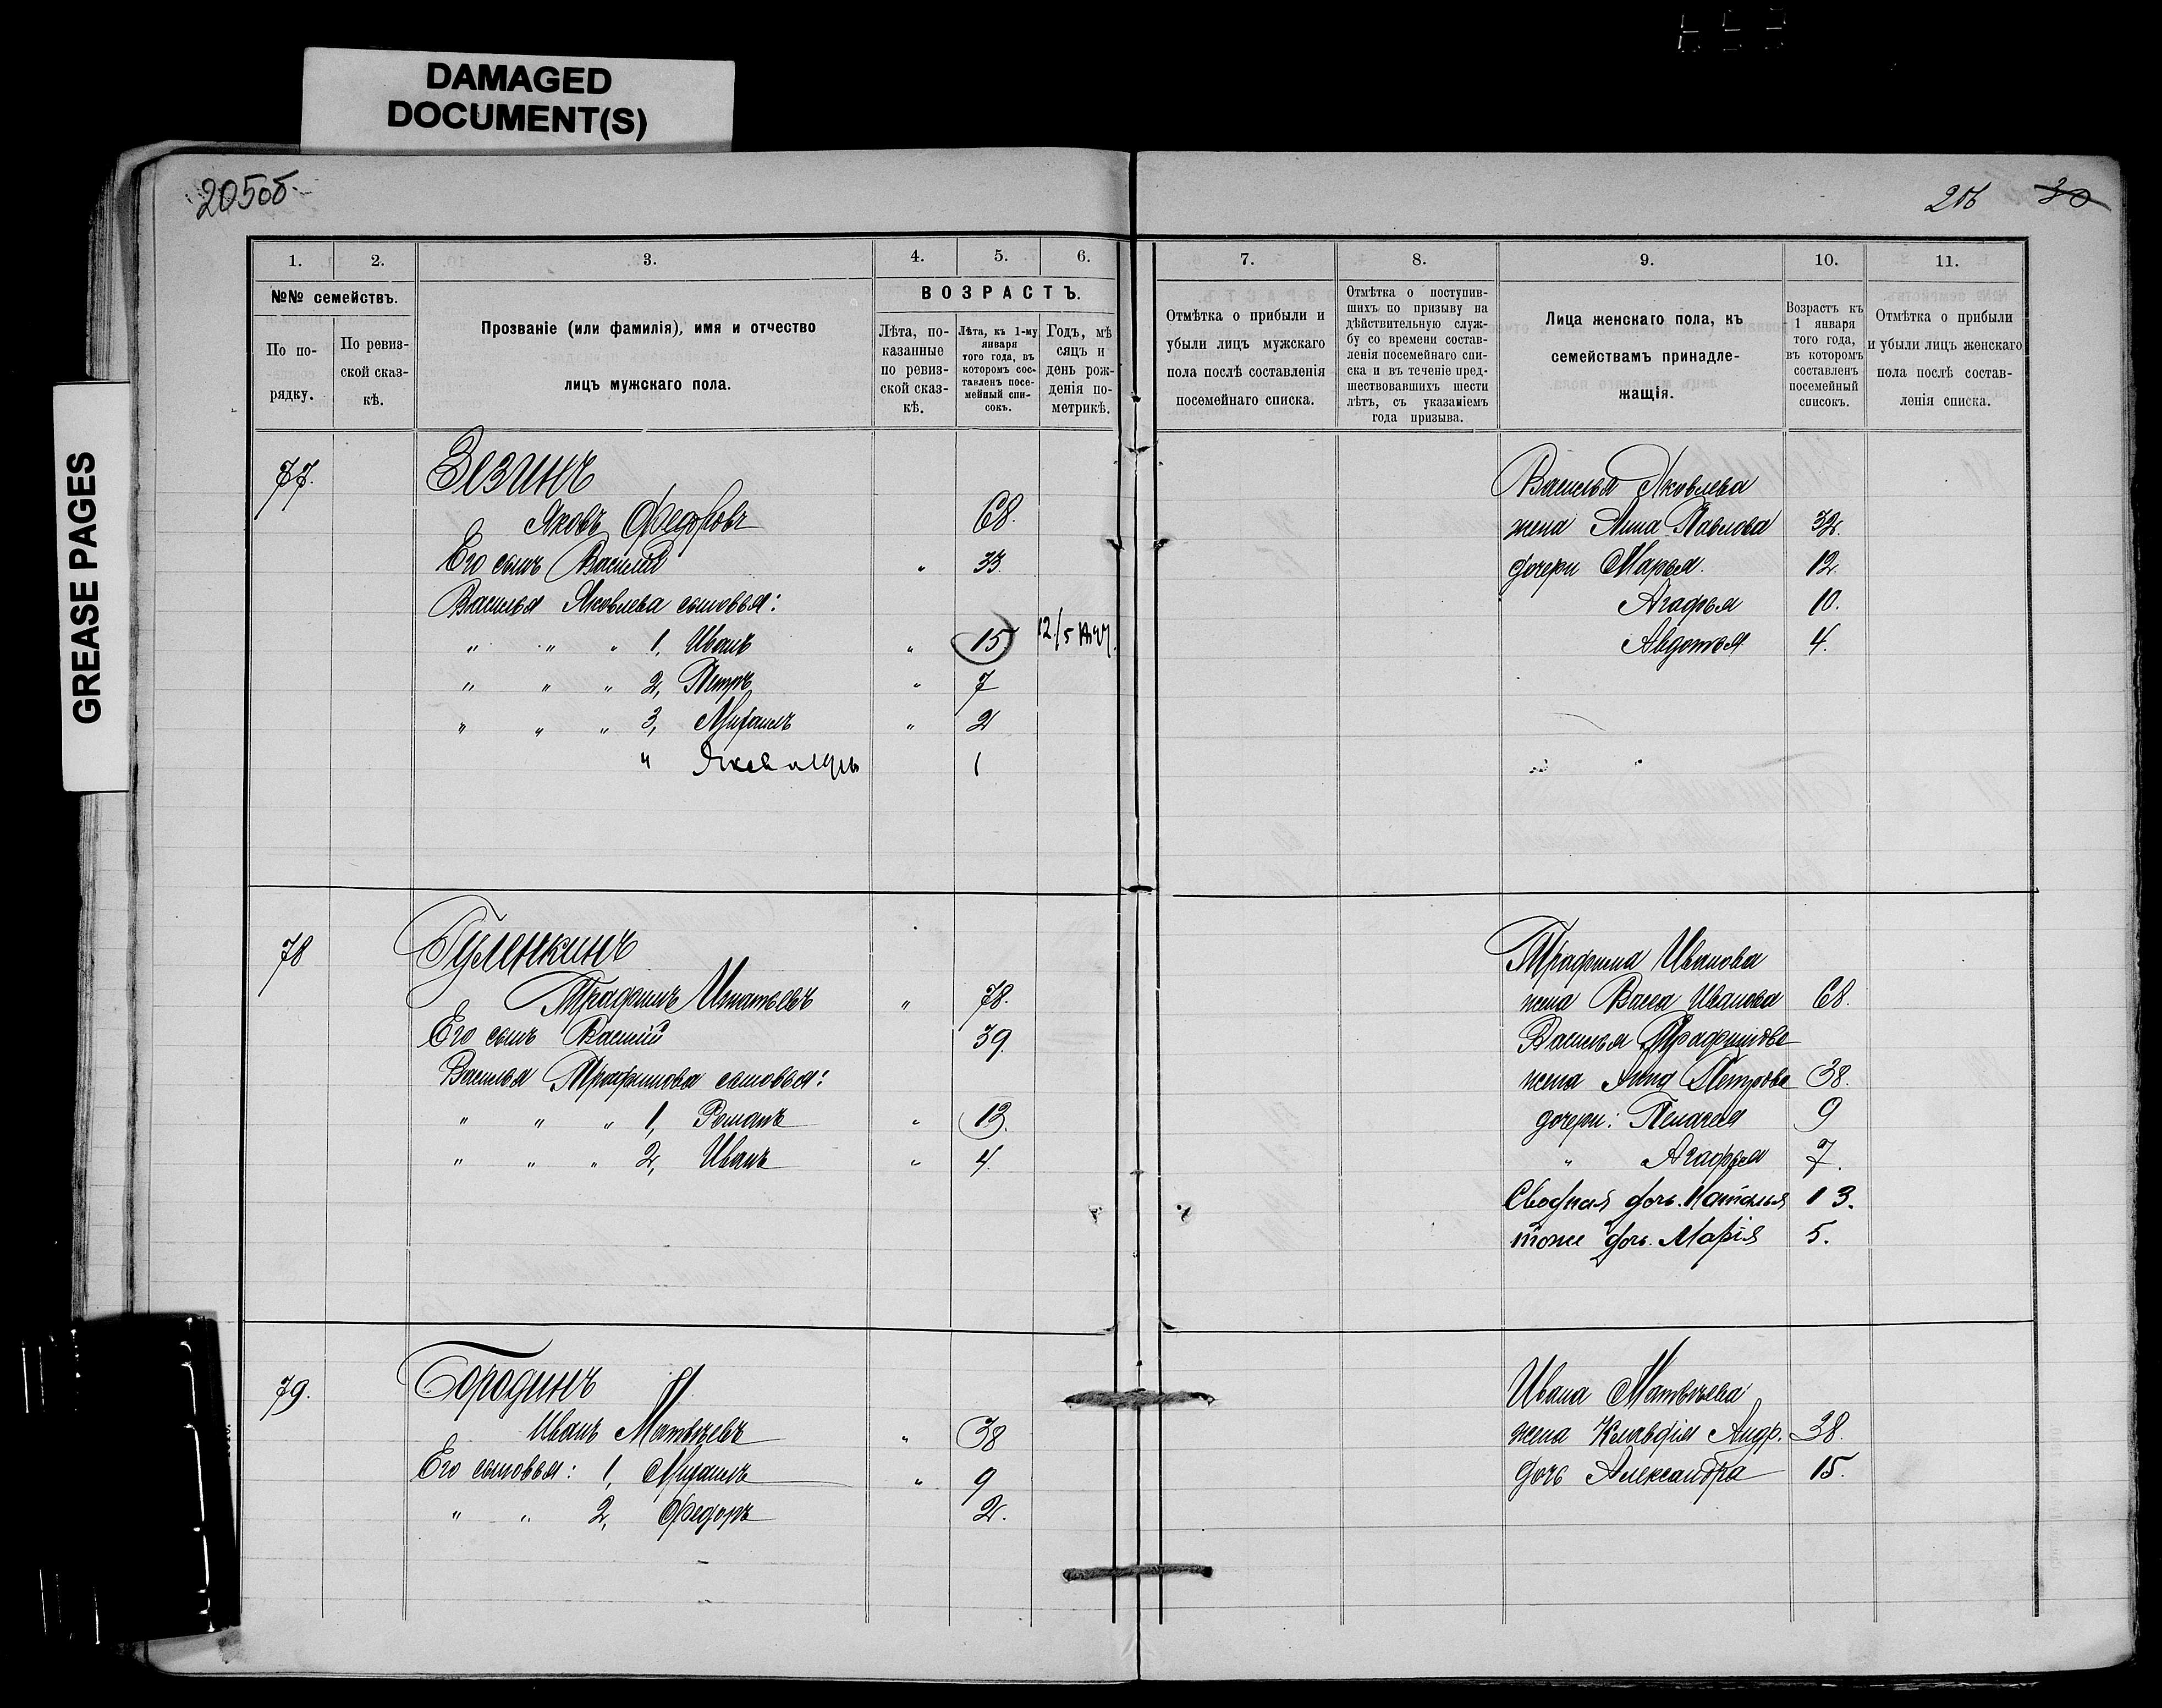 DAMAGED
DOCUMENT(S)
GREASE PAGES
205об
206 30
1. 2. 3. 4. 5. 6.
№№ семействъ.
По по-
рядку.
По ревиз-
ской сказ-
кѣ.
Прозваніе (или фамилія), имя и отчество
лицъ мужскаго пола.
ВОЗРАСТЪ.
Лѣта, по-
казанные
по ревиз-
ской сказ-
кѣ.
Лѣта, къ 1-му
января
того года, въ
которомъ сос-
тавленъ посе-
мейный спи-
сокъ.
Годъ, мѣ
сяцъ и
день рож-
денія по-
метрикѣ.
7. 8. 9. 10. 11.
Отмѣтка о прибыли и
убыли лицъ мужскаго
пола послѣ составленія
посемейнаго списка.
Отмѣтка о поступив-
шихъ по призыву на
дѣйствительную служ-
бу со времени состав-
ленія посемейнаго спи-
ска и въ теченіе пред-
шествовавшихъ шести
лѣтъ, съ указаніемъ
года призыва.
Лица женскаго пола, къ
семействамъ принадле-
жащія.
Возрастъ къ
1 января
того года,
въ которомъ
составленъ
посемейный
списокъ.
Отмѣтка о прибыли
и убыли лицъ женскаго
пола послѣ состав-
ленія списка.
77. Зезинъ
Яковъ Федоровъ 68.
Его сынъ Василій " 33.
Василья Яковлева сыновья:
" " " 1, Иванъ " 15.
" " " 2, Петръ " 7
" " " 3, Михаилъ " 2
" 1
Василья Яковлева
жена Анна Павлова 32.
дочери Марья. 12.
Агафья 10.
Авдотья 4.
78 Гуленкинъ
Трафимъ Игнатьевъ " 78.
Его сынъ Василій 39.
Василья Трафимова сыновья:
" " " 1, Романъ " 13.
" " " 2, Иванъ " 4.
Трафима Иванова
жена Васса Иванова 68.
Василья Трафимова
жена Анна Петрова 38.
дочери: Пелагея 9
" Агафья 7.
Сводная дочь Наталья 13.
тоже дочь Марія 5.
79. Бородинъ
Иванъ Матвѣевъ " 38
Его сыновья: 1, Михаилъ " 9
" " 2, Федоръ 2.
Ивана Матвѣева
жена Клавдія Андр. 38.
дочь Александра 15.